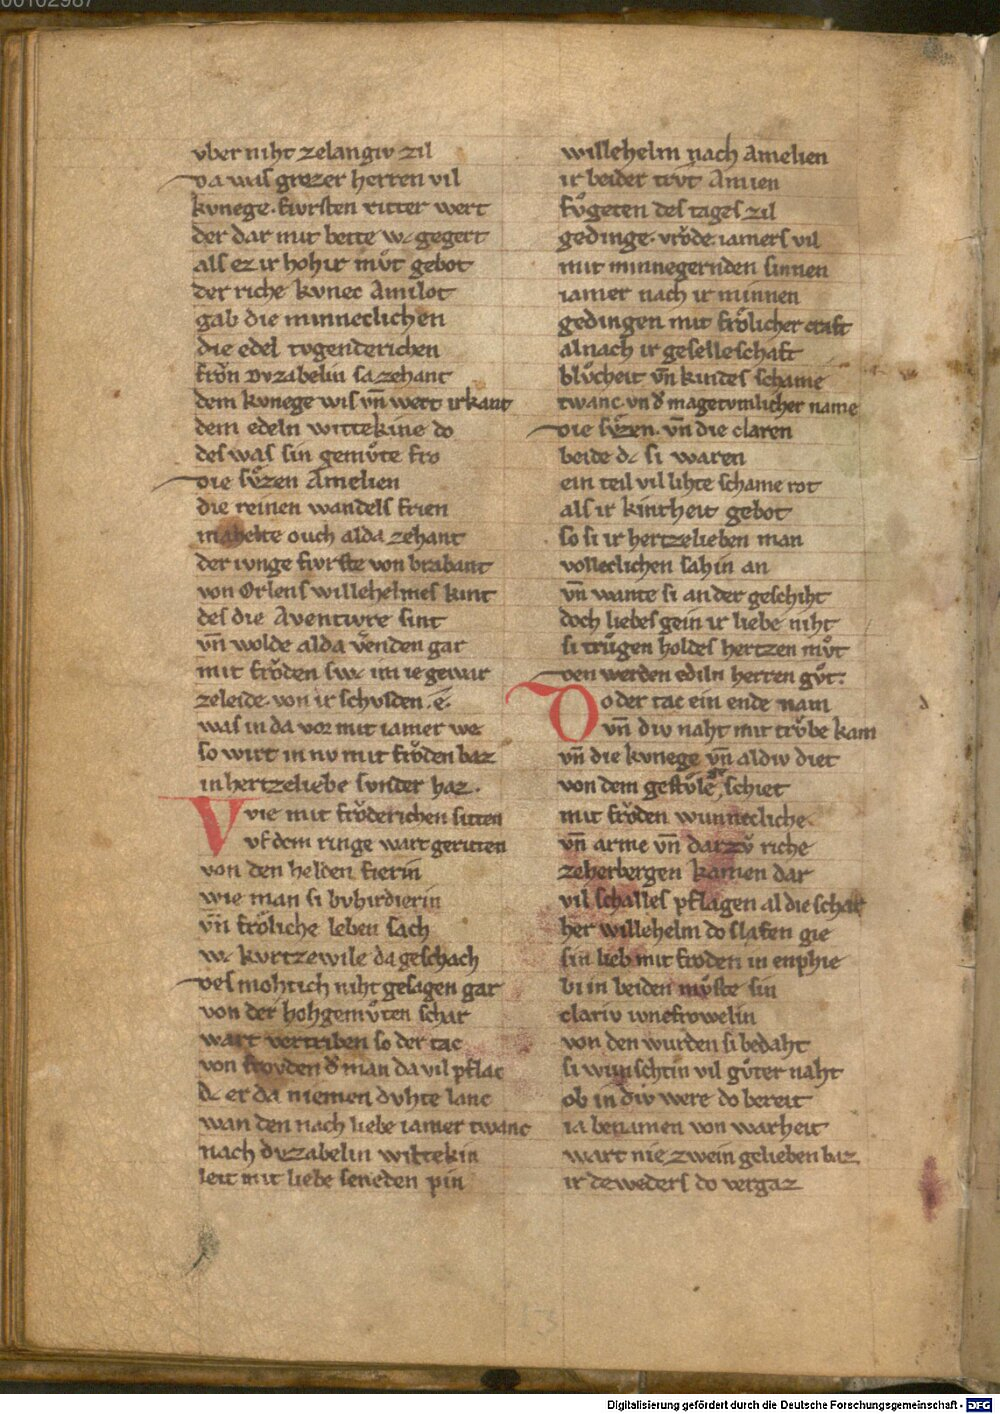 00102987
vber niht zelangiv zil
da was grozer herren vil
kvnege·fivrsten ritter wert
der dar mit bette wͣ gegert
als ez ir hohir mvͦt gebot
der riche kvnec Amilot
gab die minneclichen
die edel tvgenderichen
froͮn Dvzabelin sa zehant
dem kvnege wis vn̄ wert irkant
dem edeln wittekine do
des was sin gemvͦte fro
die svͤzen Amelien
die reinen wandels frien
mahelte ouch alda zehant
der ivnge fivrste von brabant
von Orlens willehelmes kint
des die Aventivre sint
vn̄ wolde alda venden gar
mit froͮden swͣ im ie gewar
zeleide·von ir schvlden·e·
was in da vor mit iamer we
so wirt in nv mit froͮden baz
in hertzeliebe svnder haz·
Wie mit froͮderichen sitten
vf dem ringe wart geritten
von den helden fierin
wie man si bvhirdierin
vn̄ froͤliche leben sach
wͣ kvrtzewile da geschach
des moht ich niht gesagen gar
von der hohgemvͦten schar
wart vertriben so der tac
von froyden d̄ man da vil pflac
dͣ er da niemen dvhte lanc
wan den nach liebe iamer twanc
nach dvzabelin wittekin
leit mit liebe seneden pin
willehelm nach Amelien
ir beider trvt Amien
fvͦgeten des tages zil
gedinge·vroͮde·iamers vil
mit minnegernden sinnen
iamer nach ir minnen
gedingen mit froͤlicher craft
al nach ir geselleschaft
blvͦcheit vn̄ kindes schame
twanc·vn d̄ magetvmlicher name
die svͤzen·vn̄ die claren
beide dͣ si waren
ein teil vil lihte schame rot
als ir kintheit gebot
so si ir hertzelieben man
volleclichen sahin an
vn̄ wante si an der geschiht
doch liebes gein ir liebe niht
si trvͦgen holdes hertzen mvͦt
den werden ediln herren gvͦt:
Do der tac ein ende nam
vn̄ div naht mit trvͤbe kam
vn̄ die kvnege vn̄ aldiv diet
von dem gestvͦle gar schiet
mit froͮden wunnecliche·
vn̄ arme vn̄ darzvͦ riche
zeherbergen kamen dar
vil schalles pflagen al die schar
her willehelm do slafen gie
sin lieb mit froͮden in enphie
bi in beiden mvͤste sin
clariv ivncfrowelin
von den wurden si bedaht
si wunschtin vil gvͦter naht
ob in div were do bereit
ia benamen von warheit
wart nie zwein gelieben baz
ir deweders do vergaz
Digitalisierung gefördert durch die Deutsche Forschungsgemeinschaft - DFG